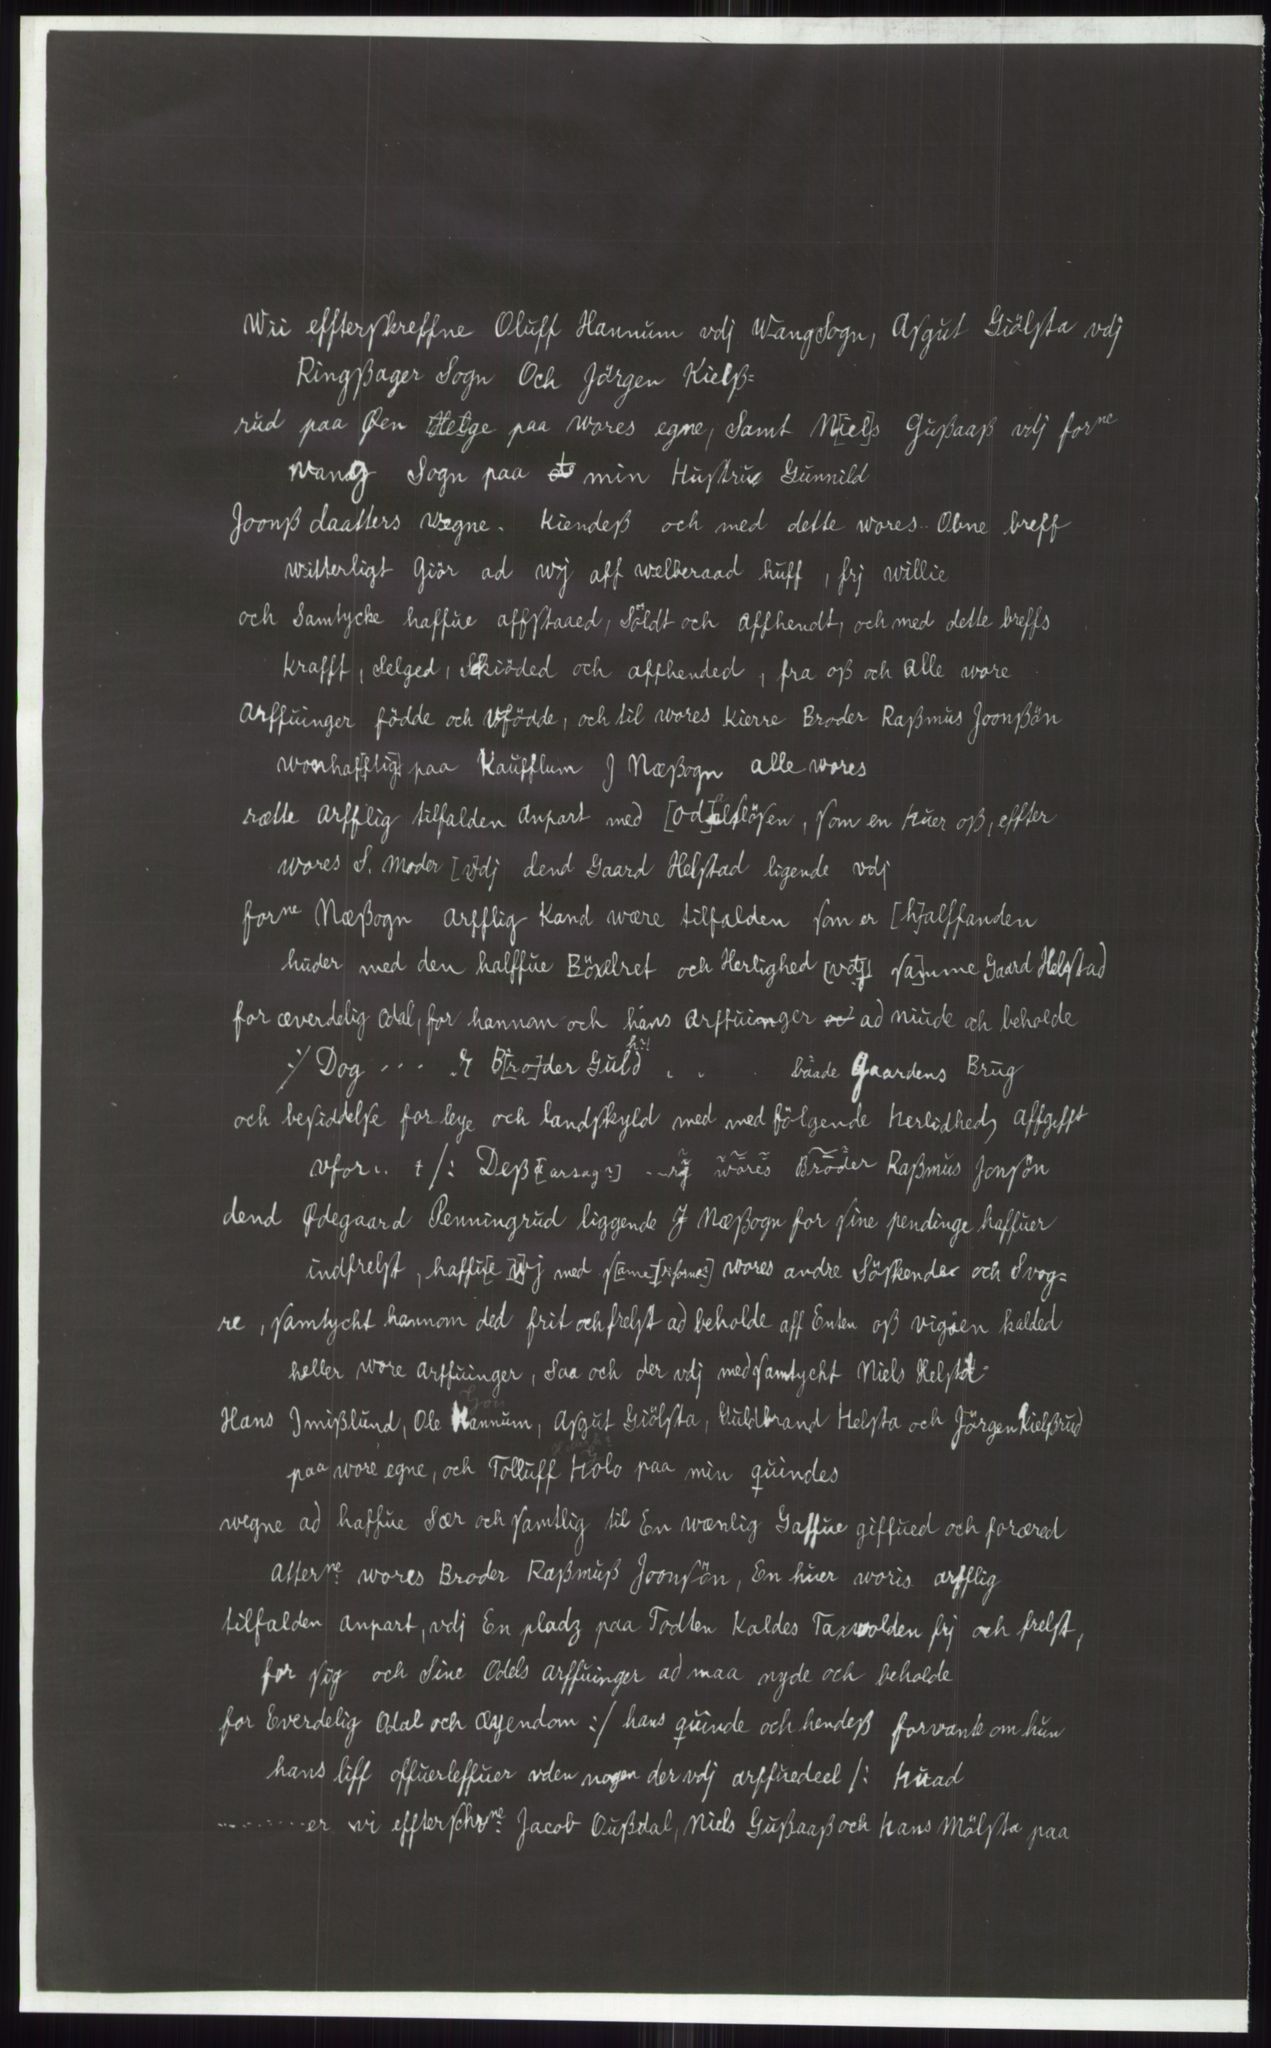 Wii effterskreffne Oluff Hannum vdj Wang Sogn, Asgut Giölsta vdj
Ringßager Sogn Och Jörgen Kielß=
rud paa Øen Helge paa wores egne, Samt N[iel]s Gußaaß vdj forne
wang Sogn paa min Hustru Gunnild
Joonß daatters wegne. Kiendeß och med dette wores Obne breff
witterligt Giör ad wij aff welberaad huff, frj willie
och Samtycke haffue affstaaed, Söldt och affhendt, och med dette breffs
krafft, Selged, Skiöded och affhended, fra oß och alle wore
Arffuinger födde och Vfödde, och til wores kierre Broder Raßmus Joonßön
wonhafftig paa Kaufflum J Næßogn alle wores
rætte arfflig tilfalden anpart med [od]elslösen, som en huer oß, effter
wores S. Moder [v]dj dend Gaard Helstad ligende vdj
forne Næßogn arfflig kand wære tilfalden som er [h]alffanden
huder med den halffue Böxelret och Herlighed [vdj sa]mme Gaard Helstad
for æverdelig odal, for hannom och hans arffuinger ad niude och beholde
:/ Dog ... .r B[ro]der Guld h?! . . . baade gaardens Brug
och besiddelse for leye och landskyld med med fölgende herlidhed, affgifft
vfor.. + /: Deß[aarsag?] ...rj wores Broder Raßmus Jonsön
dend Ødegaard Penningrud liggende J Næßogn for sine pendinge haffuer
indfrelst, haffu[e w]j med s[ame] wores andre Söskende och Svog=
re, samtycht hannom ded frit och frelst ad beholde aff Enten oß vigöen kalded
heller wore arffuinger, Saa och der vdj medsamtycht Niels Helsta
Hans Jmißlund, Ole Hannum, Asgut Giölsta, Guldbrand Helsta och Jörgen Kielßrud
paa wore egne, och Tolluff Holo paa min quindes
wegne ad haffue Sær och samtlig til En wænlig Gaffue giffued och foræred
atterne: wores Broder Raßmuß Joonsön, En huer woris arfflig
tilfalden anpart, vdj En pladz paa Todten kaldes Taxwolden frj och frelst,
for sig och Sine Odels arffuinger ad maa nyde och beholde
for Everdelig Odal och æyendom :/ hans quinde och hendeß forvante om hun
hans liff offuerleffuer vden nogen der vdj arffuedeel /: huad
........er vi effterschrne: Jacob Oußdal, Niels Gußaaß och hans Mölsta paa